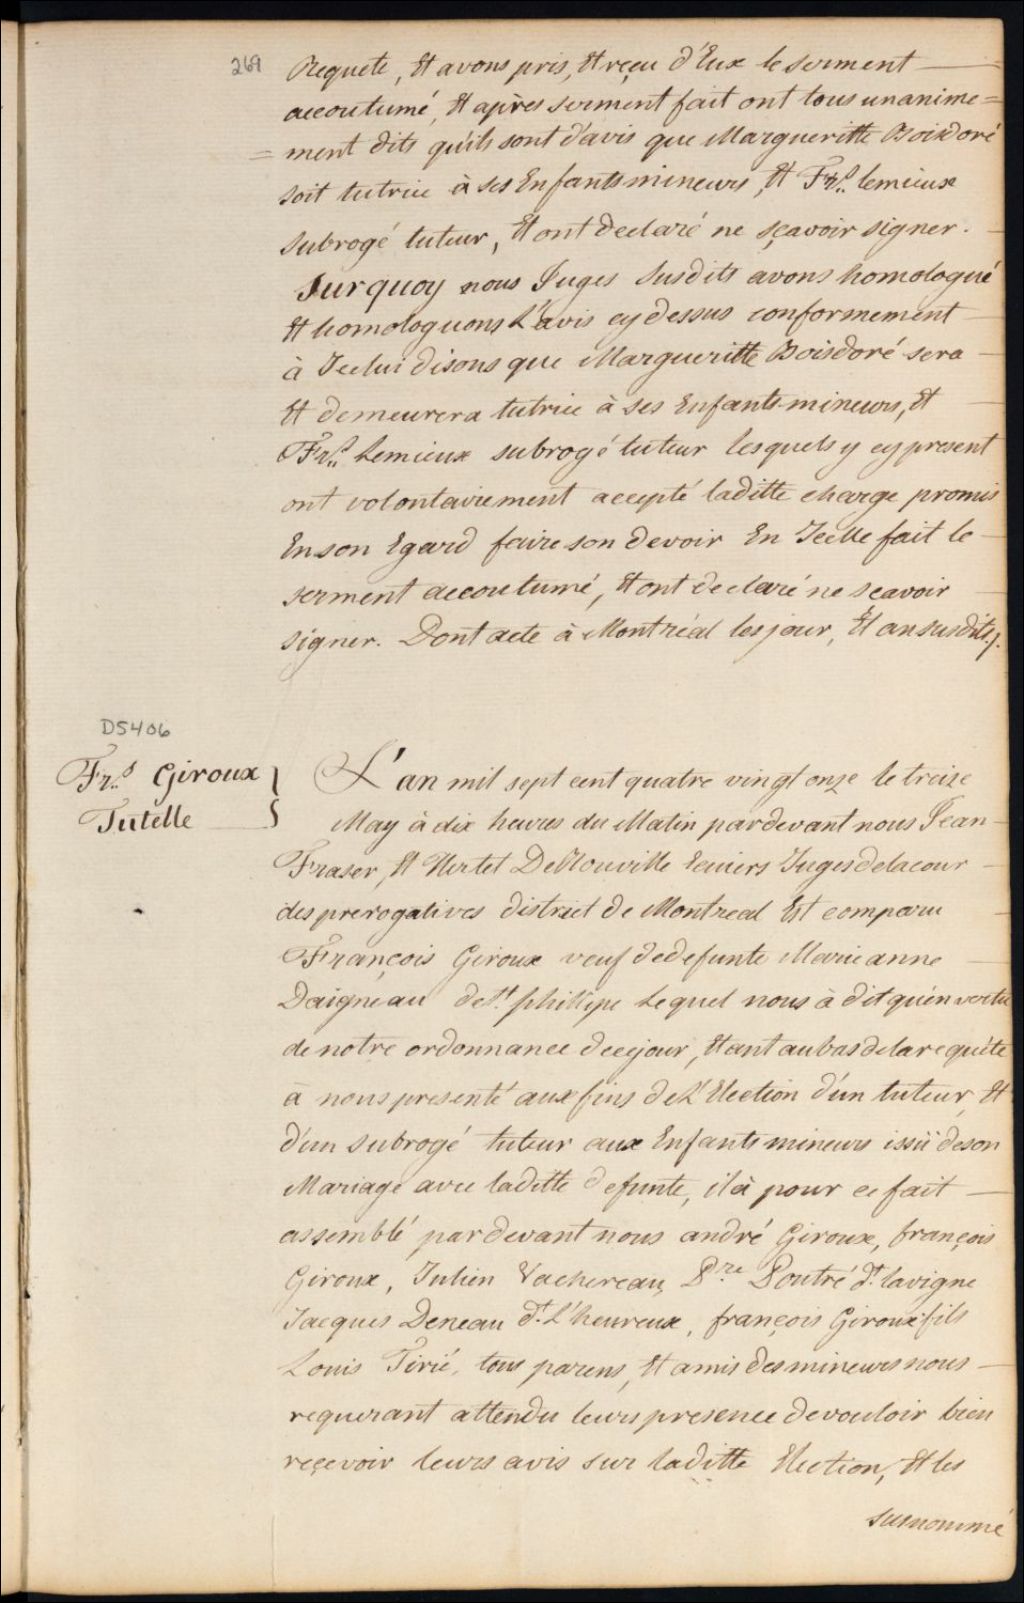 269
Requete, Et avons pris, Et reçu d'Eux le serment
accoutumé, Et après serment fait ont tous unanime=
=ment dits qu'ils sont d'avis que Margueritte Boisdoré
soit tutrice à ses Enfants mineurs, Et Frs. lemieux
subrogé tuteur, Et ont declaré ne sçavoir signer.
Surquoy nous Juges susdits avons homologué
Et homologuons L'avis cy dessus conformement
à Icelui disons que Margueritte Boisdoré sera
Et demeurera tutrice à ses Enfants mineurs, Et
Frs. Lemieux subrogé tuteur lesquels y cy present
ont volontairement accepté laditte charge promis
En son Egard faire son devoir En Icelle fait le
serment accoutumé, Et ont declaré ne scavoir
signer. Dont acte à Montréal les jour, Et an susdits./.
D5406
Frs. Giroux }
Tutelle
L'an mil sept cent quatre vingt onze le treize
May à dix heures du Matin pardevant nous Jean
Fraser, Et Hertel DeRouville Ecuiers Juges de la cour
des prerogatives district de Montreal Est comparu
François Giroux veuf de defunte Marie anne
Daigneau de St. phillipe Lequel nous à dit qu'en vertu
de notre ordonnance de ce jour, Etant au bas de la requête
à nous presenté aux fins de L'Election d'un tuteur, Et
d'un subrogé tuteur aux Enfants mineurs issuï de son
Mariage avec laditte defunte, il à pour ce fait
assemblé par devant nous andré Giroux, françois
Giroux, Julien Vachereau, Prre Poutré dt. lavigne
Jacques Deneau dt. L'heureux, françois Giroux fils
Louis Tirié, tous parens, Et amis des mineurs nous
requerant attendu leurs presence de vouloir bien
reçevoir leurs avis sur laditte Election, Et les
susnommé